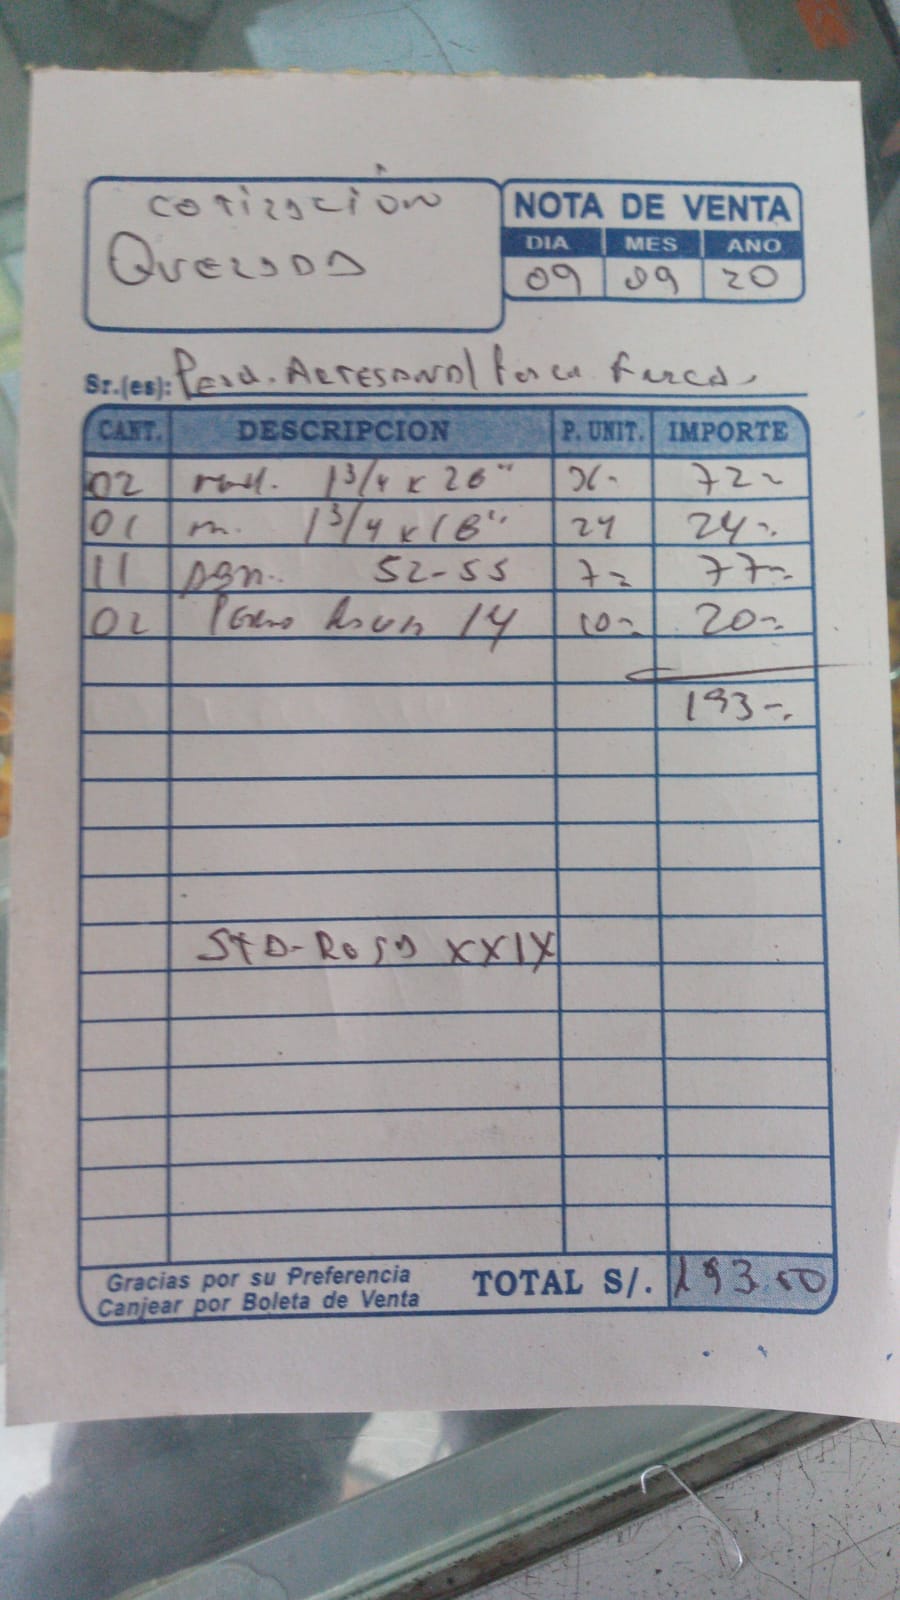 cotización
Quezada
NOTA DE VENTA
DIA MES AÑO
09 09 20
Sr.(es): Pesa. Artesanal
CANT. DESCRIPCION P. UNIT. IMPORTE
02 1 3/4 x 26" 36- 72-
01 m. 1 3/4 x 18" 24 24-
11 52-55 7- 77-
02 14 10- 20-
193-
STD-ROSA XXIX
Gracias por su Preferencia
Canjear por Boleta de Venta
TOTAL S/. 193.00